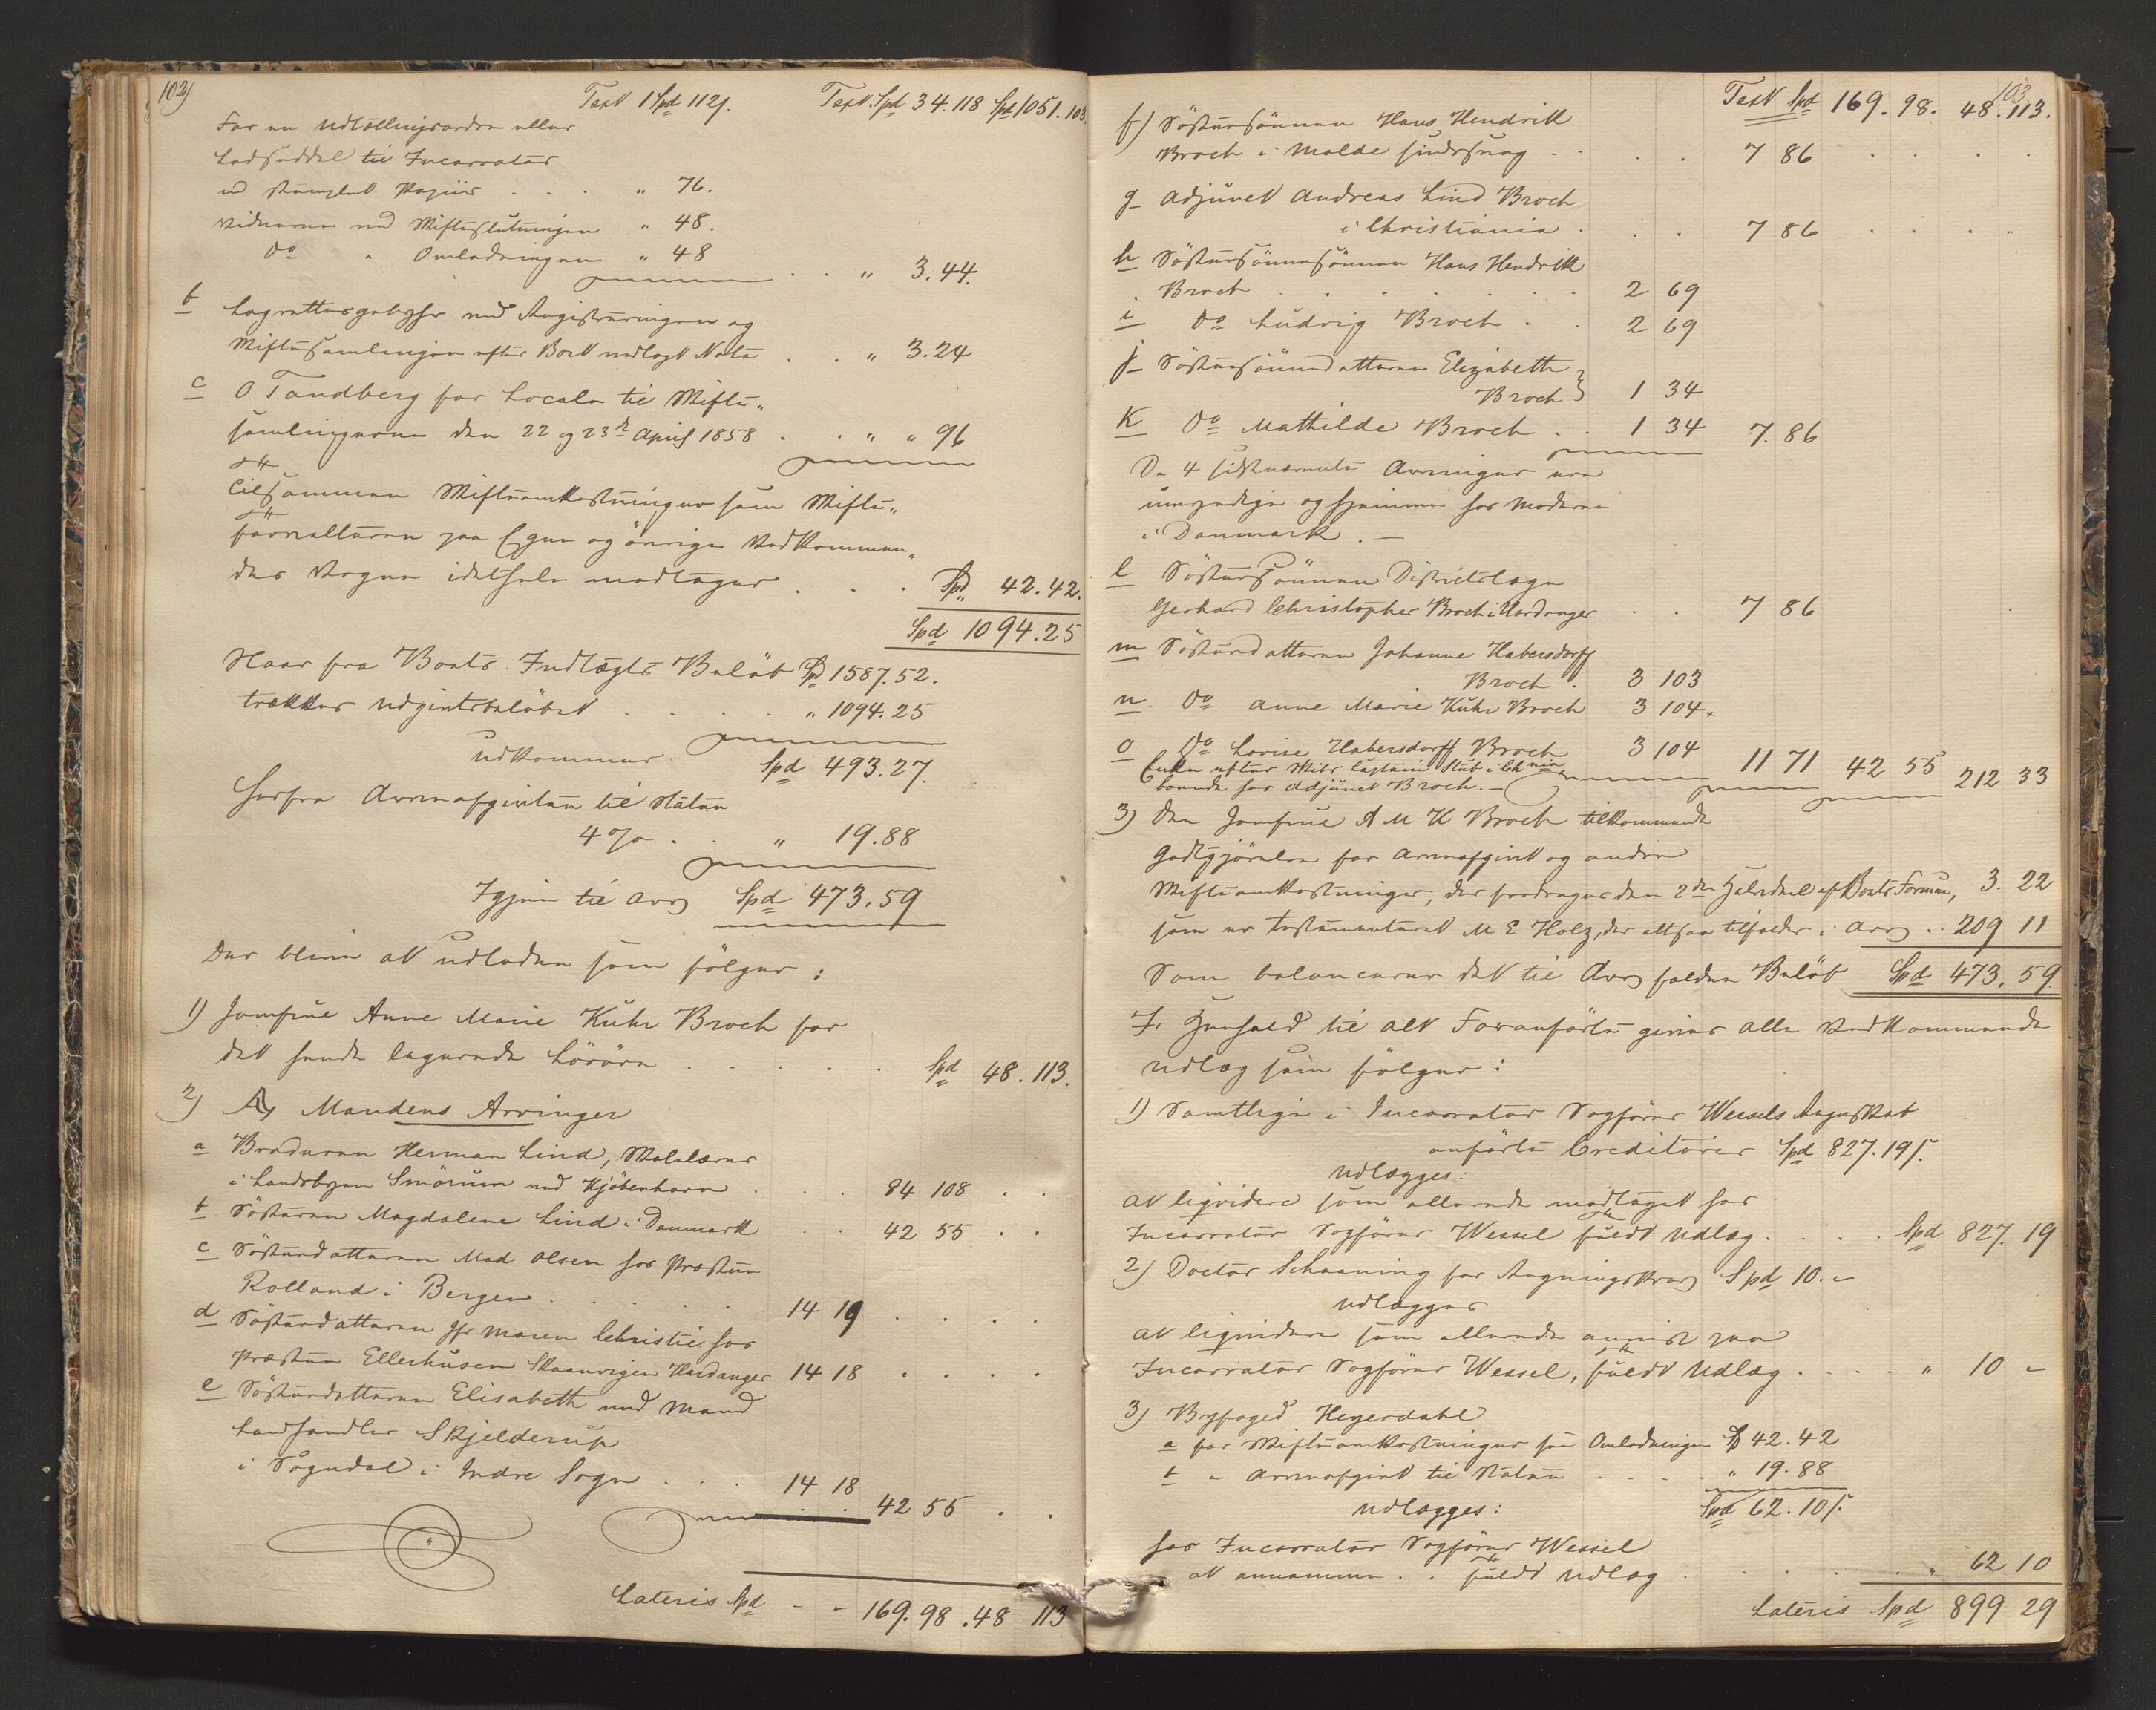 102)
Text 1 Spd 112/. Text. Spd 34.118 Spd 1051.103.
For en Udlællingsordre eller
Lodseddel til Incasrator
ad stemplet Papiir . . . " 76.
Vidnerne ved Skiftesluttningen " 48.
Do " Omlodningen " 48
. . " 3.44.
b Lagrettesgebyhr ved Registreringen og
Skiftesamlingen efter Bort nedlagt Nota . . " 3.24
c O Tandberg for Locale til Skifte„
samlingerne den 22 og 23de April 1858 . . " " 96
tilsammen Skifteomkostninger som Skifte„
forvalteren paa Egne og övrige Vedkommen„
des Vegne idethele modtager . . . Spd„ 42.42.
Spd 1094.25
Naar fra Boets Indtægts Belöb Spd 1587.52.
trækkes Udgiftsbelöbet . . . . „ 1094.25
Udkommer Spd 493.27.
Herfra Arveafgiften til Staten
4% . . „ 19.88
Igjen til Arv Spd 473.59
Der bliver at udlodde som fölger :
1) Jomfrue Anne Marie Kuhr Broch for
det hende legerede Löröre . . . . . Spd 48.113.
2) Af Mandens Arvinger
a Broderen Herman Lind, Skolelærer
i Landsbyen Smörum ved Kjöbenhavn . . . 84 108 . .
b Sösteren Magdalene Lind i Danmark . . 42 55 . .
c Sösterdatteren Mad Olsen hos Præsten
Rolland i Bergen . . . . . 14 19 . . . .
d Sösterdatteren Jfr Maren Christie hos
Præsten Ellerhusen Skaanvigen Hardanger 14 18 . . . .
e Sösterdatteren Elisabeth med Mand
Landhandler Skjelderup
i Sogndal i Indre Sogn . . . 14 18
42 55 . .
Lateris Spd - - 169.98.48 113
103
Text Spd 169.98. 48.113.
f) Söstersönnen Hans Hendrik
Broch i Molde . . . . 7 86 . . . .
g Adjunct Andreas Lind Broch
i Christiania . . . 7 86 . . . .
h Söstersönnesönnen Hans Hendrik
Broch . . . . . . 2 69
i Do Ludvig Broch . . 2 69
j Söstersönnedatteren Elizabeth
Broch 1 34
K Do Mathilde Broch . . 1 34 7.86
De 4 sidstnævnte Arvinger ere
umyndige og hjemme hos Moderen
i Danmark . –
l Söstersönnen Districtslæge
Gerhard Christopher Broch i Hardanger . . 7 86
m Sösterdatteren Johanne Habersdorff
Broch . 3 103
n Do Anne Marie Kuhr Broch 3 104.
o Do Lovise Habersdorff Broch 3 104
Enke efter Skibs Capitain Stub i Chnia
boende hos Adjunct Broch. – 11 71 42 55 212 33
3) Den Jomfrue A M K Broch tilkommende
Godtgjörelse for Arveafgivt og andre
Skifteomkostninger, der fradrages den 2den Halvdeel af Boets Formue, 3. 22
som er testamenteret M E Holz, der altsaa tilfalder i Arv . . 209 11
Som balancerer det til Arv faldne Belöb Spd 473.59.
I Henhold til alt Foranförte gives alle Vedkommende
Udlæg som fölger :
1) Samtlige i Incasrator Sagförer Wessels Regnskab
anförte Creditorer Spd 827.19/.
Udlægges :
at liqvidere som allerede modtaget hos
Incasrator Sagförer Wessel fuldt Udlæg . . . . Spd 827. 19
2) Doctor Schaaning for Regningskrav Spd 10. –
Udlægges
at liqvidere som allerede anviist paa
Incasrator Sagförer Wessel, fuldt Udlæg . . . . " 10 –
3) Byfoged Heyerdahl
a for Skifteomkostninger før Omlodningen Sp 42.42
b " Arveafgivt til Staten . . . . " 19.88
Udlægges : Spd 62.10/.
hos Incasrator Sagförer Wessel
at annamme . . fuldt Udlæg . . . . . „ 62 10
Lateris Spd 899 29